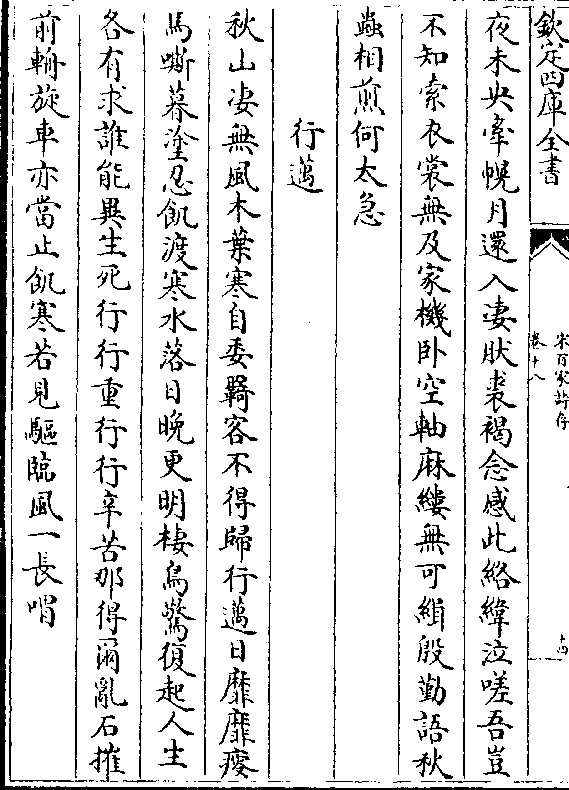 欽定四庫全書
宋百家詩存
卷十八
十四
夜未央搴幌月還入凄肰裘褐念感此絡緯泣嗟吾豈
不知索衣裳無及家機卧空軸麻縷無可緝殷勤語秋
蟲相煎何太急
行邁
秋山凄無風木葉寒自委羇客不得歸行邁日靡靡瘦
馬嘶暮塗忍飢渡寒水落日晚更明棲鳥驚復起人生
各有求誰能異生死行行重行行辛苦那得爾亂石摧
前輪旋車亦當止飢寒若見驅臨風一長喟